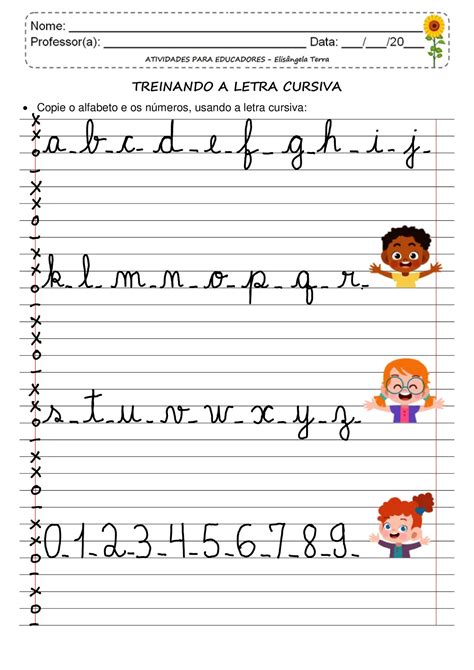 Nome: ___________________________
Professor(a): ______________________ Data: ___/___/20___
ATIVIDADES PARA EDUCADORES - Elisângela Terra
TREINANDO A LETRA CURSIVA
• Copie o alfabeto e os números, usando a letra cursiva:
a-b-c-d-e-f-g-h-i-j-
k-l-m-n-o-p-q-r-
s-t-u-v-w-x-y-z-
0-1-2-3-4-5-6-7-8-9-